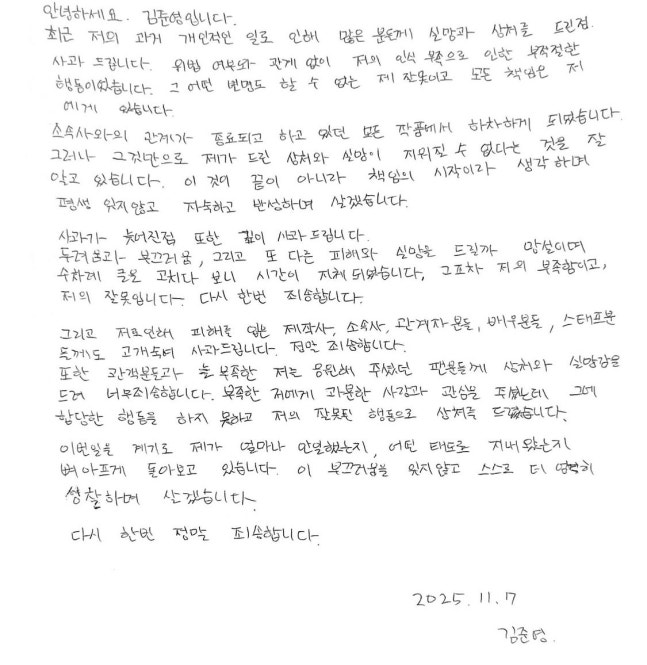 안녕하세요. 김준영입니다.
최근 저의 과거 개인적인 일로 인해 많은 분들께 실망과 상처를 드린점
사과 드립니다. 위법 여부와 관계 없이 저의 인식 부족으로 인한 부적절한
행동이었습니다. 그 어떤 변명도 할 수 없는 제 잘못이고 모든 책임은 저
에게 있습니다.
소속사와의 관계가 종료되고 하고 있던 모든 작품에서 하차하게 되었습니다.
그러나 그것만으로 제가 드린 상처와 실망이 지워질 수 없다는 것을 잘
알고 있습니다. 이 것이 끝이 아니라 책임의 시작이라 생각하며
평생 잊지않고 자숙하고 반성하며 살겠습니다.
사과가 늦어진점 또한 깊이 사과드립니다.
두려움과 부끄러움, 그리고 또 다른 피해와 실망을 드릴까 망설이며
수차례 글을 고치다 보니 시간이 지체 되었습니다. 그조차 저의 부족함이고,
저의 잘못입니다. 다시 한번 죄송합니다.
그리고 저로인해 피해를 입은 제작사, 소속사, 관계자분들, 배우분들, 스태프분
들께도 고개숙여 사과드립니다. 정말 죄송합니다.
또한 관객분들과 늘 부족한 저를 응원해 주셨던 팬분들께 상처와 실망감을
드려 너무죄송합니다. 부족한 저에게 과분한 사랑과 관심을 주셨는데 그에
합당한 행동을 하지 못하고 저의 잘못된 행동으로 상처를 드렸습니다.
이번일을 계기로 제가 얼마나 안일했는지, 어떤 태도로 지내왔는지
뼈아프게 돌아보고 있습니다. 이 부끄러움을 잊지않고 스스로 더 엄격히
성찰하며 살겠습니다.
다시 한번 정말 죄송합니다.
2025.11.7
김준영.